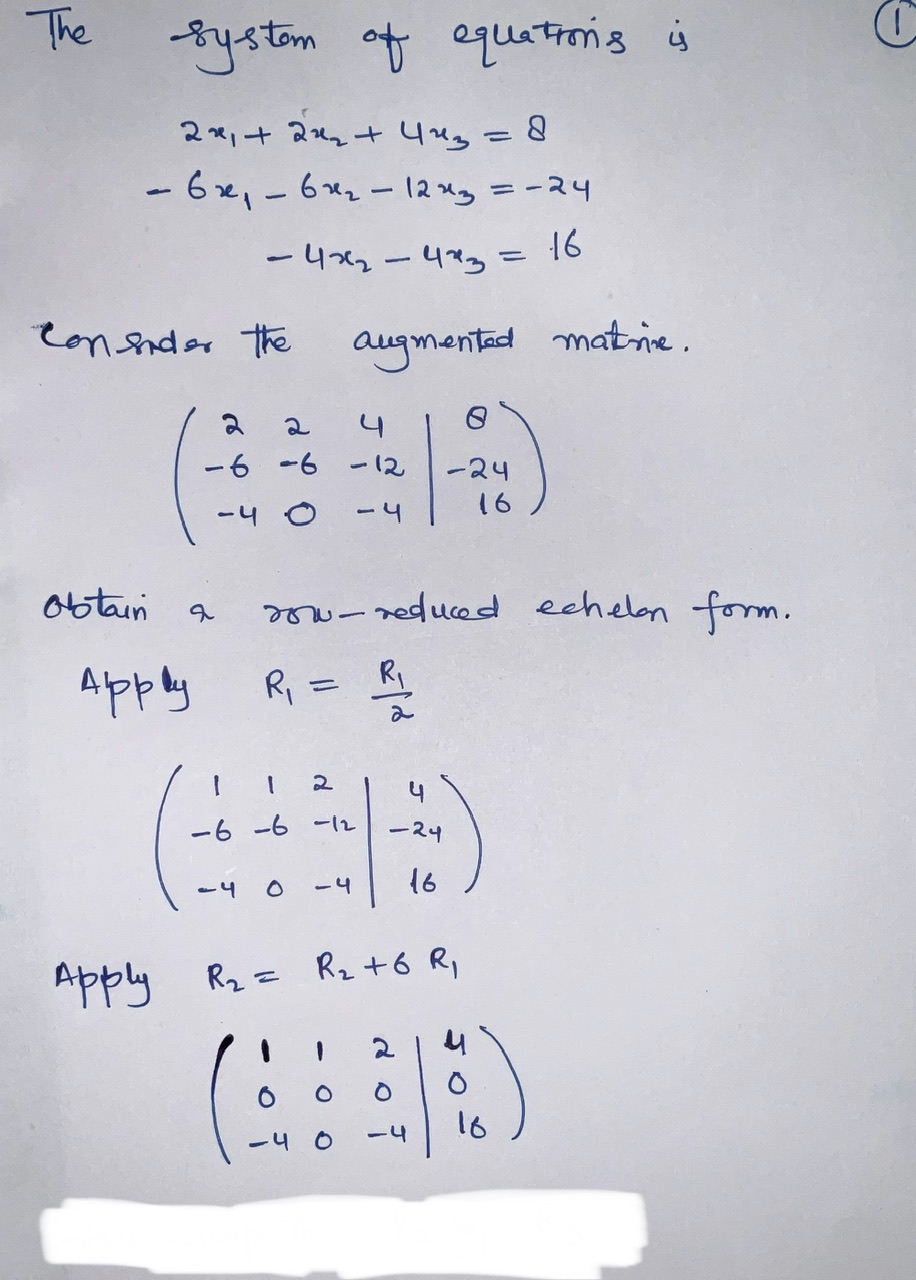 The system of equations is
①
2x₁ + 2x₂ + 4x₃ = 8
- 6x₁ - 6x₂ - 12x₃ = -24
- 4x₂ - 4x₃ = 16
Consider the augmented matrix.
2 2 4 | 8
-6 -6 -12 | -24
-4 0 -4 | 16
Obtain a row-reduced echelon form.
Apply R₁ = R₁/2
1 1 2 | 4
-6 -6 -12 | -24
-4 0 -4 | 16
Apply R₂ = R₂ + 6 R₁
1 1 2 | 4
0 0 0 | 0
-4 0 -4 | 16